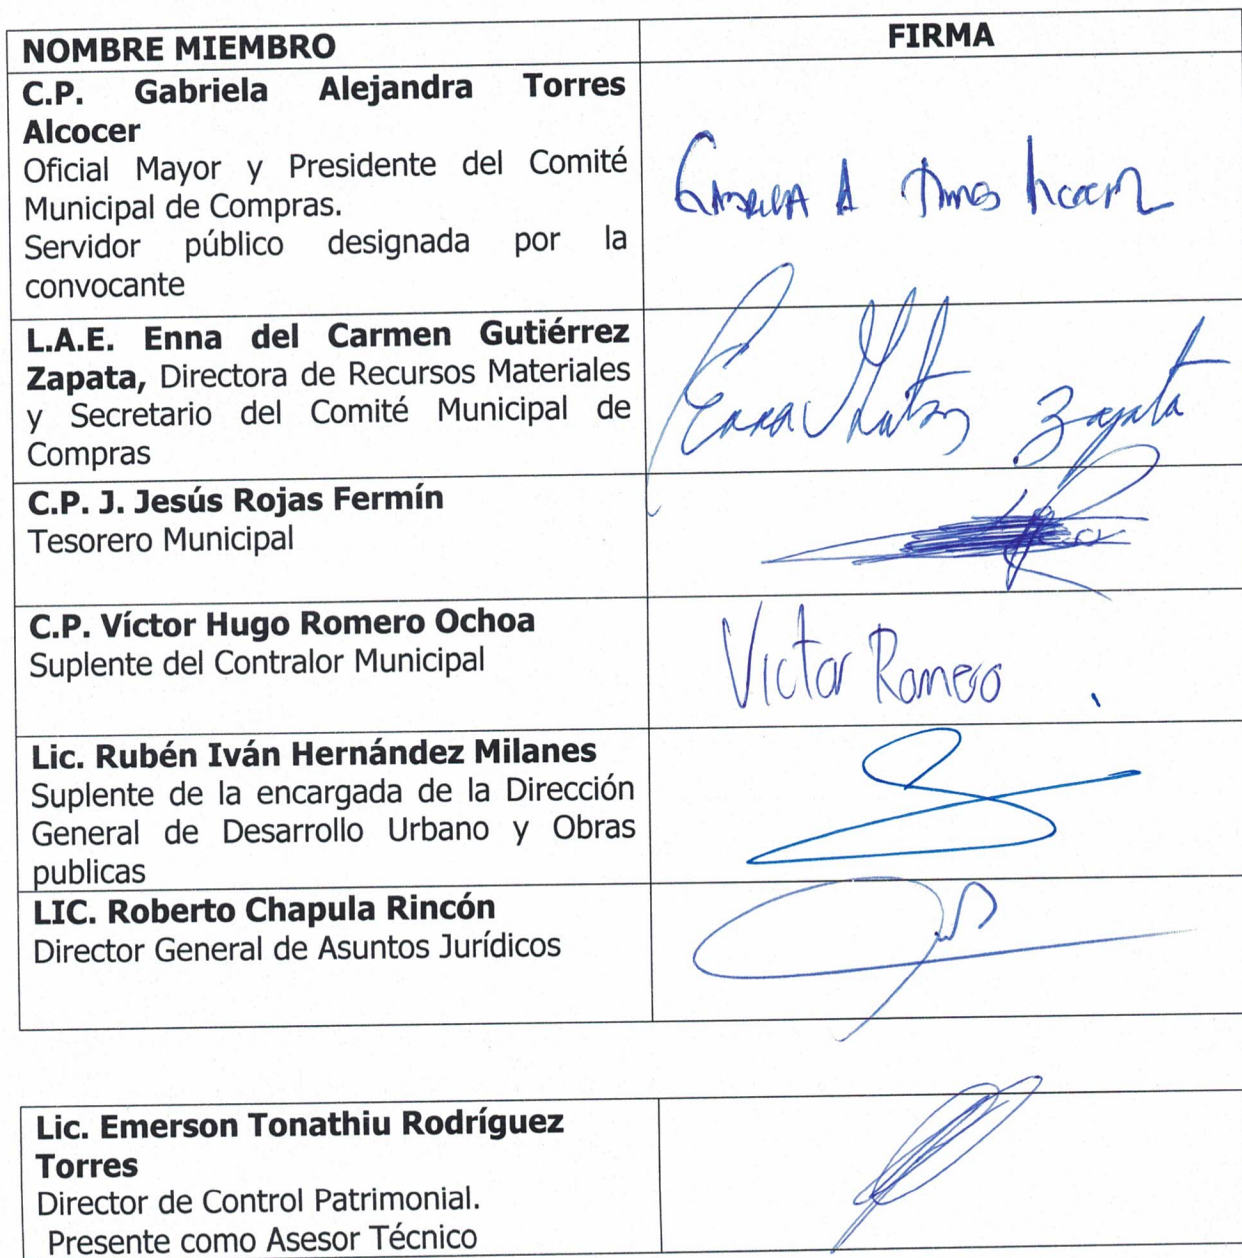 NOMBRE MIEMBRO
FIRMA
C.P. Gabriela Alejandra Torres
Alcocer
Oficial Mayor y Presidente del Comité
Municipal de Compras.
Servidor público designada por la
convocante
L.A.E. Enna del Carmen Gutiérrez
Zapata, Directora de Recursos Materiales
y Secretario del Comité Municipal de
Compras
Enna Zapata
C.P. J. Jesús Rojas Fermín
Tesorero Municipal
C.P. Víctor Hugo Romero Ochoa
Suplente del Contralor Municipal
Victor Romero
Lic. Rubén Iván Hernández Milanes
Suplente de la encargada de la Dirección
General de Desarrollo Urbano y Obras
publicas
LIC. Roberto Chapula Rincón
Director General de Asuntos Jurídicos
Lic. Emerson Tonathiu Rodríguez
Torres
Director de Control Patrimonial.
Presente como Asesor Técnico